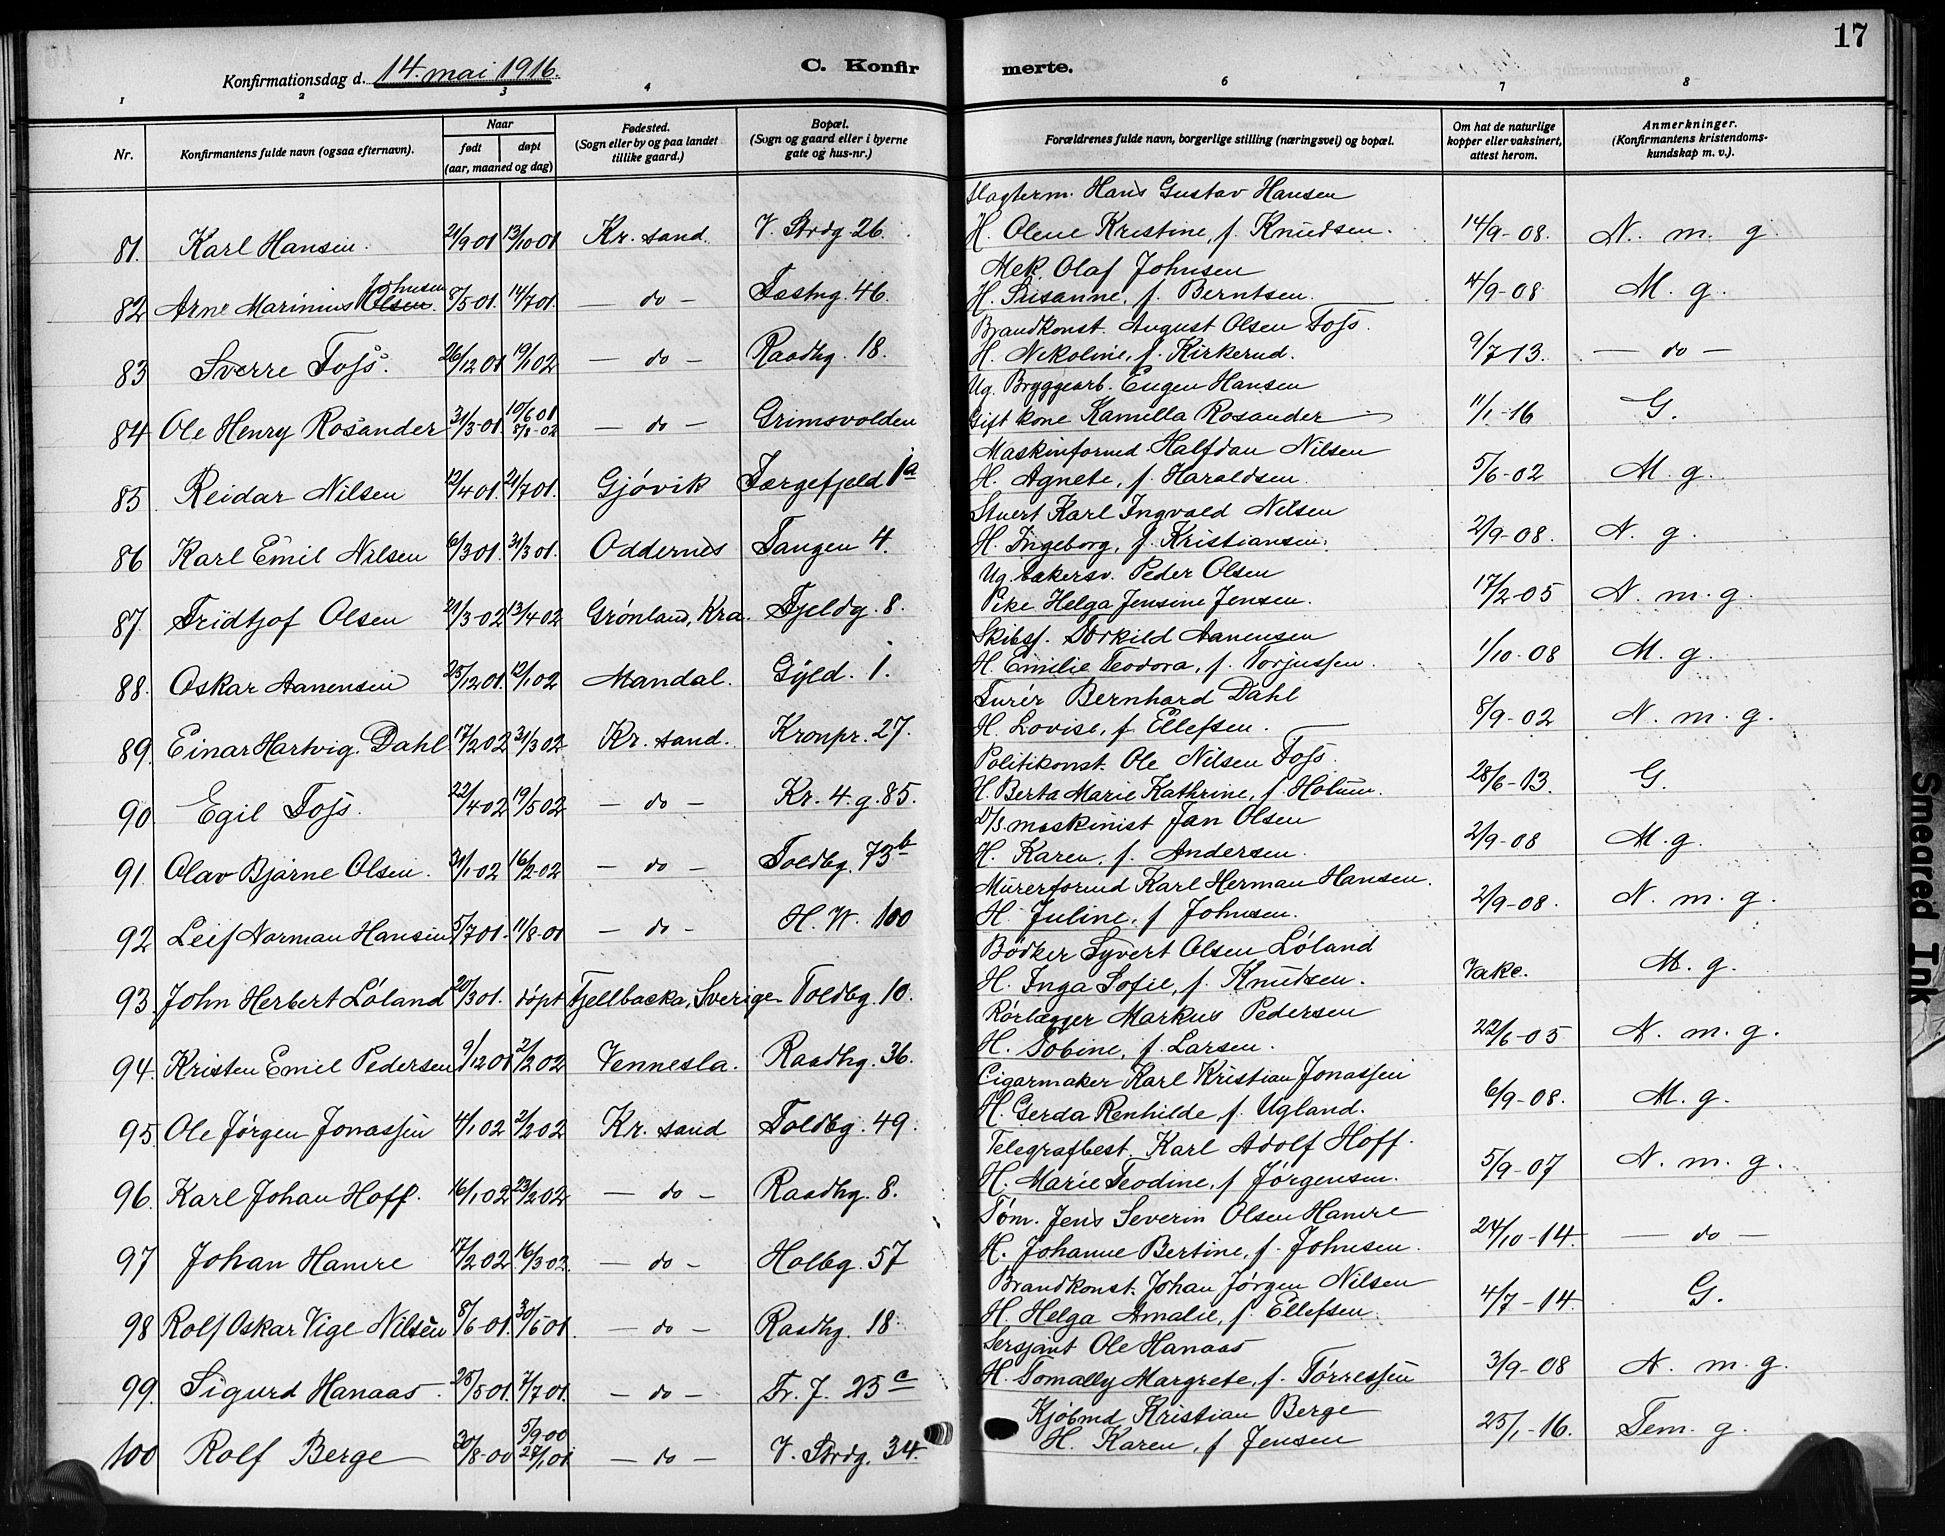 17
Konfirmationsdag d. 14. mai 1916.
C. Konfirmerte.
1 2 3 4 5 6 7 8
Nr. | Konfirmantens fulde navn (ogsaa efternavn). | Naar født døpt (aar, maaned og dag) | Fødested. (Sogn eller by og paa landet tillike gaard.) | Bopæl. (Sogn og gaard eller i byerne gate og hus-nr.) | Forældrenes fulde navn, borgerlige stilling (næringsvei) og bopæl. | Om hat de naturlige kopper eller vaksinert, attest herom. | Anmerkninger. (Konfirmantens kristendomskundskap m. v.).
Slagterm. Hans Gustav Hansen
81. Karl Hansen. 21/9-01 13/10-01 Kr. sand. V. Strdg. 26. H. Olene Kristine, f. Knudsen. 14/9-08. N. m. g
Mek. Olaf Johnsen
82 Arne Marinius Olsen Johnsen 8/5-01. 14/7-01 — do — Fæstng. 46. H. Susanne, f. Berntsen. 4/9-08 M. g.
Brandkonst. August Olsen Foss.
83 Sverre Foss. 26/12 01 19/1 02 — do — Raadhg. 18. H. Nikoline, f. Kirkerud. 9/7 13. — do —
Ug. Bryggearb. Eugen Hansen
84 Ole Henry Rosander 31/3-01 10/6-01 — do — Grimsvolden Gift kone Kamilla Rosander 11/1-16 G.
Maskinformd Halfdan Nilsen
85. Reidar Nilsen 12/4 01. 21/7 01. Gjøvik Færgefjeld 1a H. Agnete, f. Haraldsen. 5/6-02 M. g.
Stuert Karl Ingvald Nilsen
86 Karl Emil Nilsen 6/3 01. 31/3 01. Oddernes Tangen 4. H. Ingeborg, f. Kristiansen. 2/9-08. N. g.
Ug. bakersv. Peder Olsen
87. Fridtjof Olsen 21/3-02 13/4 02 Grønland, Kra. Fjeldg. 8. Pike Helga Jensine Jensen. 17/2-05 N. m. g.
Skibsf. Torkild Aanensen
88. Oskar Aanensen 25/12 01. 12/1 02 Mandal. Gyld. 1. H. Emilie Teodora, f. Torjussen. 1/10-08 M. g.
Furér Bernhard Dahl
89. Einar Hartvig Dahl 17/2 02 31/3 02 Kr. sand. Kronpr. 27. H. Lovise, f. Ellefsen. 8/9-02 N. m. g.
Politikonst. Ole Nilsen Foss.
90 Egil Foss. 22/4 02 19/5 02 — do — Kr. 4. g. 85. H. Berta Marie Kathrine, f. Holum. 28/6-13. G.
D/S maskinist Jan Olsen
91. Olav Bjarne Olsen. 31/1-02 16/2-02 — do — Toldbg. 73b H. Karen, f. Andersen 2/9-08 M. g.
Murerformd Karl Herman Hansen.
92 Leif Norman Hansen 5/7 01. 11/8-01 — do — H. W. 100 H. Juline, f Johnsen. 2/9-08. N. m. g.
Bødker Syvert Olsen Løland
93 John Herbert Løland 20/3 01. døpt Fjellbacka, Sverige Toldbg. 10. H. Inga Sofie, f. Knudsen. Vakc. M. g.
Rørlægger Markus Pedersen
94. Kristen Emil Pedersen 9/12 01 2/2 02 Vennesla. Raadhg. 36. H. Tobine, f. Larsen. 22/6-05 N. m. g.
Cigarmaker Karl Kristian Jonassen
95 Ole Jørgen Jonassen 4/1 02 2/2 02 Kr. sand Toldbg. 49. H. Gerda Renhilde, f. Ugland. 6/9-08. M. g.
Telegrafbest. Karl Adolf Hoff.
96. Karl Johan Hoff. 16/1 02 23/2 02 — do — Raadhg. 8. H. Marie Teodine, f Jørgensen. 5/9-07 N. m. g.
Tøm. Jens Severin Olsen Hamre
97 Johan Hamre 17/2 02 16/3 02. — do — Holbg. 57 H. Johanne Bertine, f. Johnsen. 24/10-14. — do —
Brandkonst. Johan Jørgen Nilsen
98 Rolf Oskar Vige Nilsen 8/6-01 30/6 01. — do — Raadhg. 18. H. Helga Amalie, f. Ellefsen. 4/7-14. G.
Sersjant Ole Hanaas
99. Sigurd Hanaas. 25/5 01. 7/7 01. — do — Fr. J. 25c H. Tomally Margrete, f. Tørressen 3/9-08 N. m. g.
Kjøbmd Kristian Berge
100 Rolf Berge 30/8-00 5/9-00 27/1 01 — do — V. Strdg. 34. H. Karen, f Jensen 25/1-16. Tem. g.
Smeared Ink